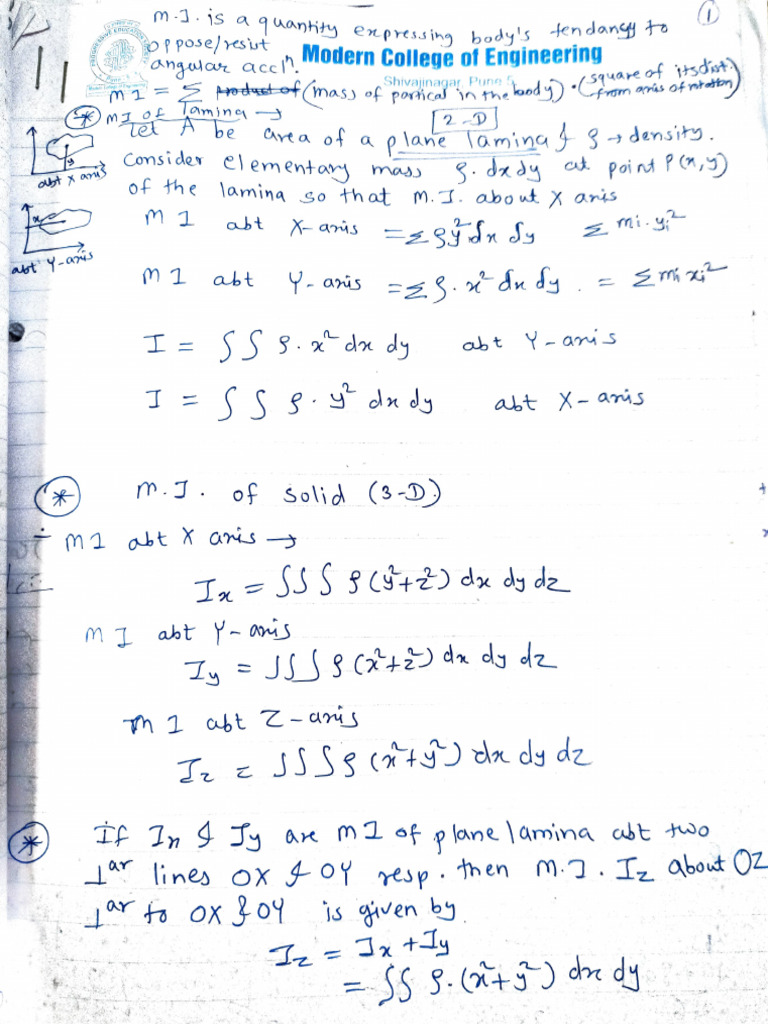 M.I. is a quantity expressing body's tendancy to
oppose/resist
angular acclⁿ.
①
Modern College of Engineering
Shivajinagar, Pune 5
MI = Σ product of (mass of partical in the body) · (square of its dist. from axis of rotation)
* MI of lamina → 2-D
Let A be area of a plane lamina & ρ → density.
Consider elementary mass ρ. dx dy at point P(x,y)
of the lamina so that M.I. about X axis
abt X axis
MI abt X-axis = Σ ρ y² δx δy Σ mi. yi²
abt Y-axis
MI abt Y-axis = Σ ρ. x² δx δy. = Σ mi xi²
I = ∫∫ ρ. x² dx dy abt Y-axis
I = ∫∫ ρ. y² dx dy abt X-axis
* M.I. of solid (3-D)
MI abt X axis →
Ix = ∫∫∫ ρ (y²+z²) dx dy dz
MI abt Y-axis
Iy = ∫∫∫ ρ (x²+z²) dx dy dz
MI abt Z-axis
Iz = ∫∫∫ ρ (x²+y²) dx dy dz
* If Ix & Iy are MI of plane lamina abt two
⊥ar lines OX & OY resp. then M.I. Iz about OZ
⊥ar to OX & OY is given by
Iz = Ix + Iy
= ∫∫ ρ. (x²+y²) dx dy